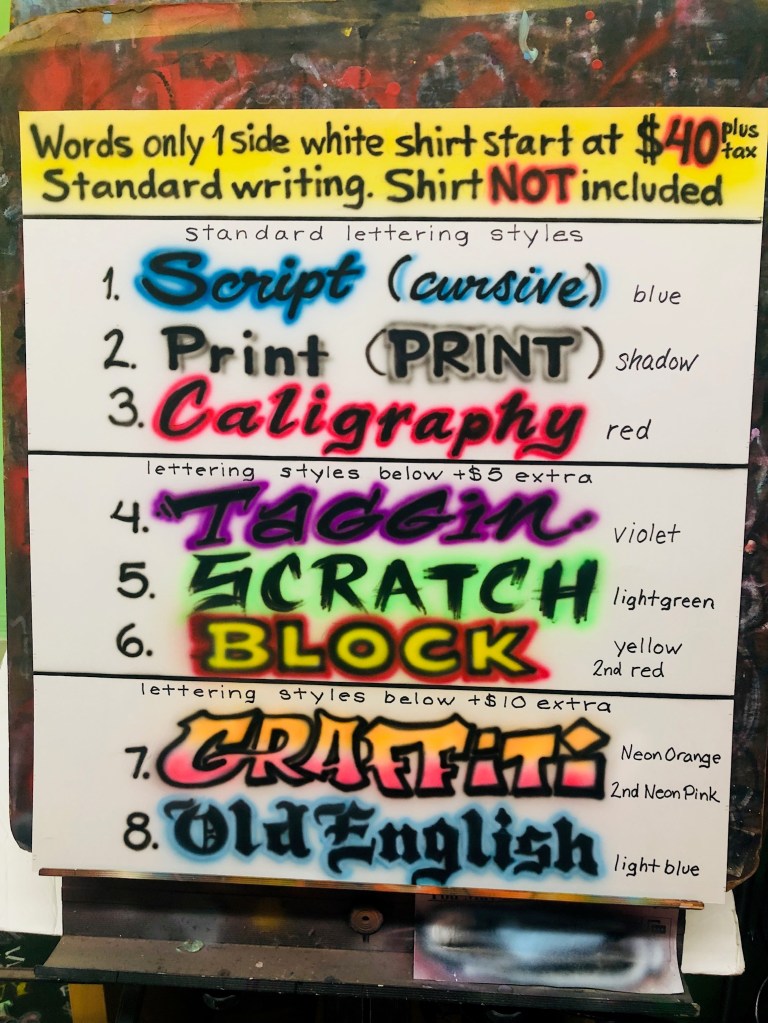 Words only 1 side white shirt start at $40 plus tax
Standard writing. Shirt NOT included
standard lettering styles
1. Script (cursive) blue
2. Print (PRINT) shadow
3. Caligraphy red
lettering styles below +$5 extra
4. TAGGiN violet
5. SCRATCH lightgreen
6. BLOCK yellow
2nd red
lettering styles below +$10 extra
7. GRAFFiTi Neon Orange
2nd Neon Pink
8. Old English light blue